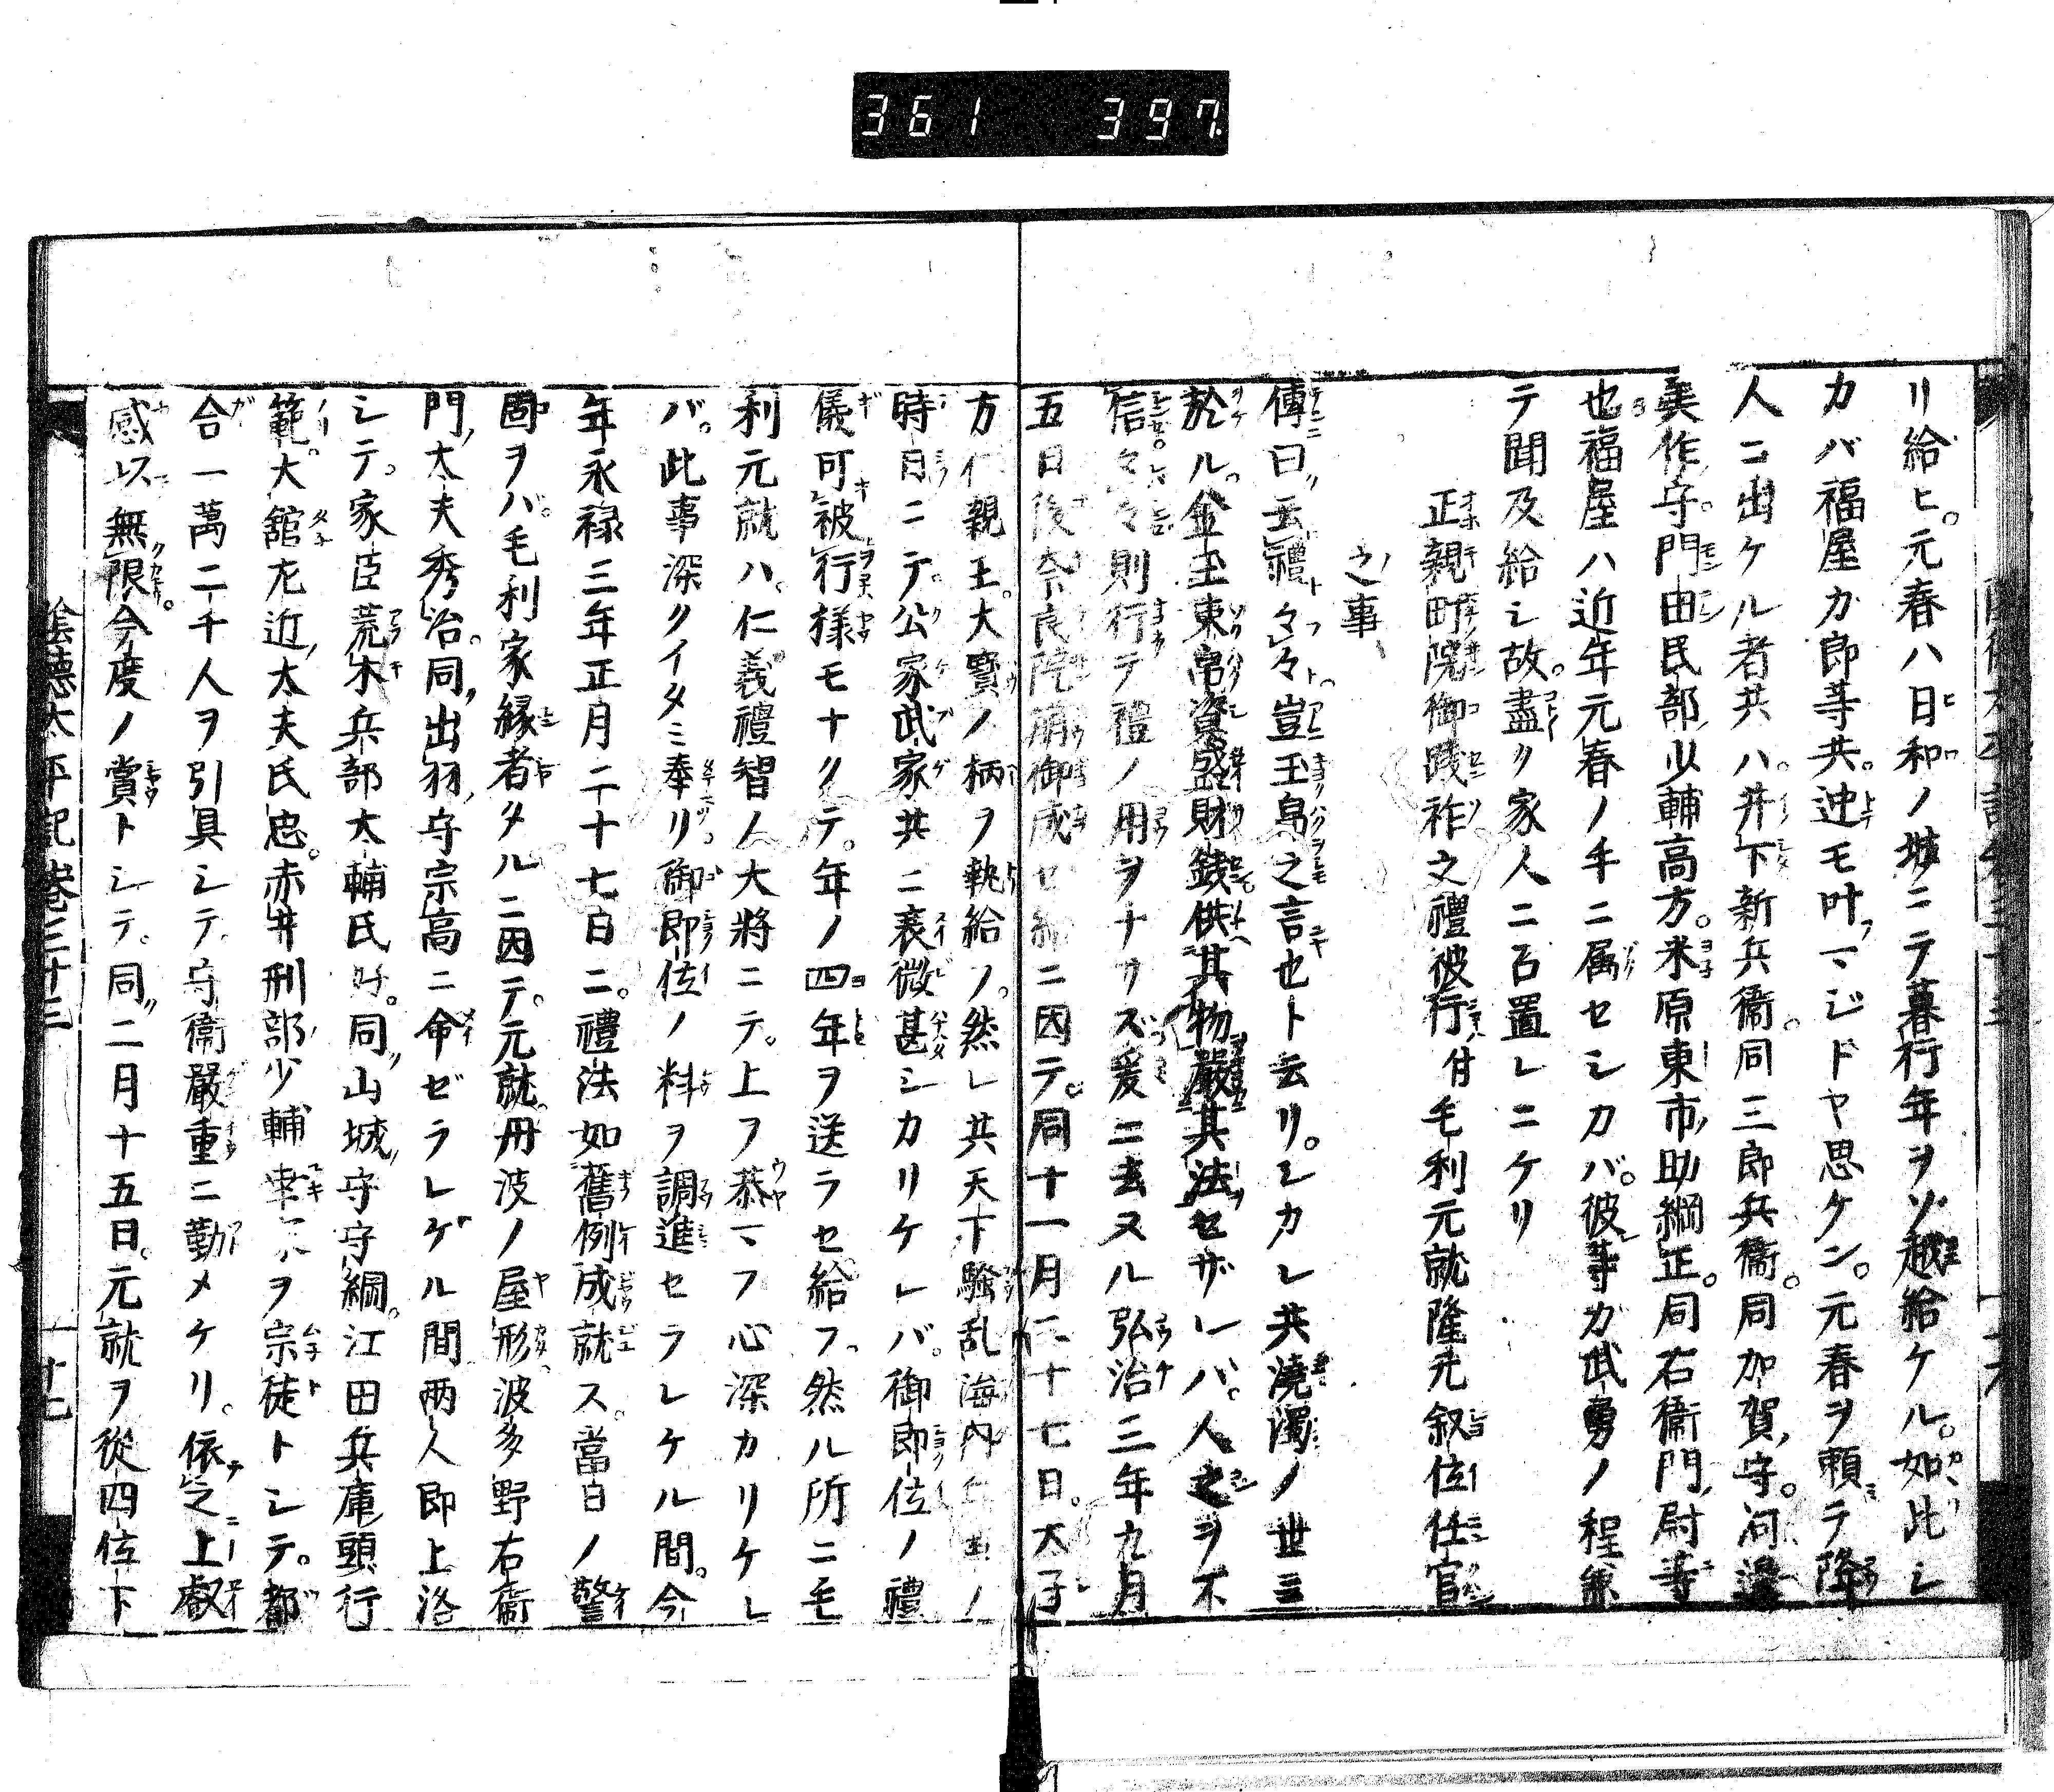 361 397
リ給ヒ。元春ハ日和ノ城ニテ暮行年ヲゾ越給ケル。如此シ
カバ福屋カ郎等共。迚モ叶マジドヤ思ケン。元春ヲ頼テ降
人ニ出ケル者共ハ。井下新兵衞。同三郎兵衞。同加賀守。河邊
美作守。門田民部少輔高方。米原東市助綱正。同右衞門尉等
也。福屋ハ近年元春ノ手ニ属セシカバ。彼等ガ武勇ノ程兼
テ聞及給シ故。盡ク家人ニ召置レニケリ
正親町院御踐祚之禮被行付毛利元就隆元叙位任官
之事
傳曰云禮々々豈玉帛之言也ト云リ。シカレ共澆濁ノ世ニ
於ル。金玉束帛資盛財錢供其物嚴其法セザレバ。人之ヲ不
信々々則行テ禮ノ用ヲナサズ爰ニ去ヌル弘治三年九月
五日後奈良院崩御成セ給ニ因テ。同十一月二十七日。太子
方仁親王。大寳ノ柄ヲ執給フ。然レ共天下騒乱海内ノ
時日ニテ。公家武家共ニ衰微甚シカリケレバ。御即位ノ禮
儀可被行様モナクテ。年ノ四年ヲ送ラセ給フ。然ル所ニ毛
利元就ハ。仁義禮智ノ大將ニテ。上フ恭マフ心深カリケレ
バ。此事深クイタミ奉リ。御即位ノ料ヲ調進セラレケル間。今
年永禄三年正月二十七日ニ。禮法如舊例成就ス。當日ノ警
固ヲバ。毛利家縁者タルニ因テ。元就丹波ノ屋形波多野右衞
門太夫秀治。同出羽守宗高ニ命ゼラレゲル間両人即上洛
シテ。家臣荒木兵部太輔氏好。同山城守守綱。江田兵庫頭行
範。大舘左近太夫氏忠。赤井刑部少輔幸ヲ宗徒トシテ。都
合一萬二千人ヲ引具シテ。守衞嚴重ニ勤メケリ。依之上叡
感以無限。今度ノ賞トシテ。同二月十五日。元就ヲ從四位下
陰德太平記卷三十三
廿七